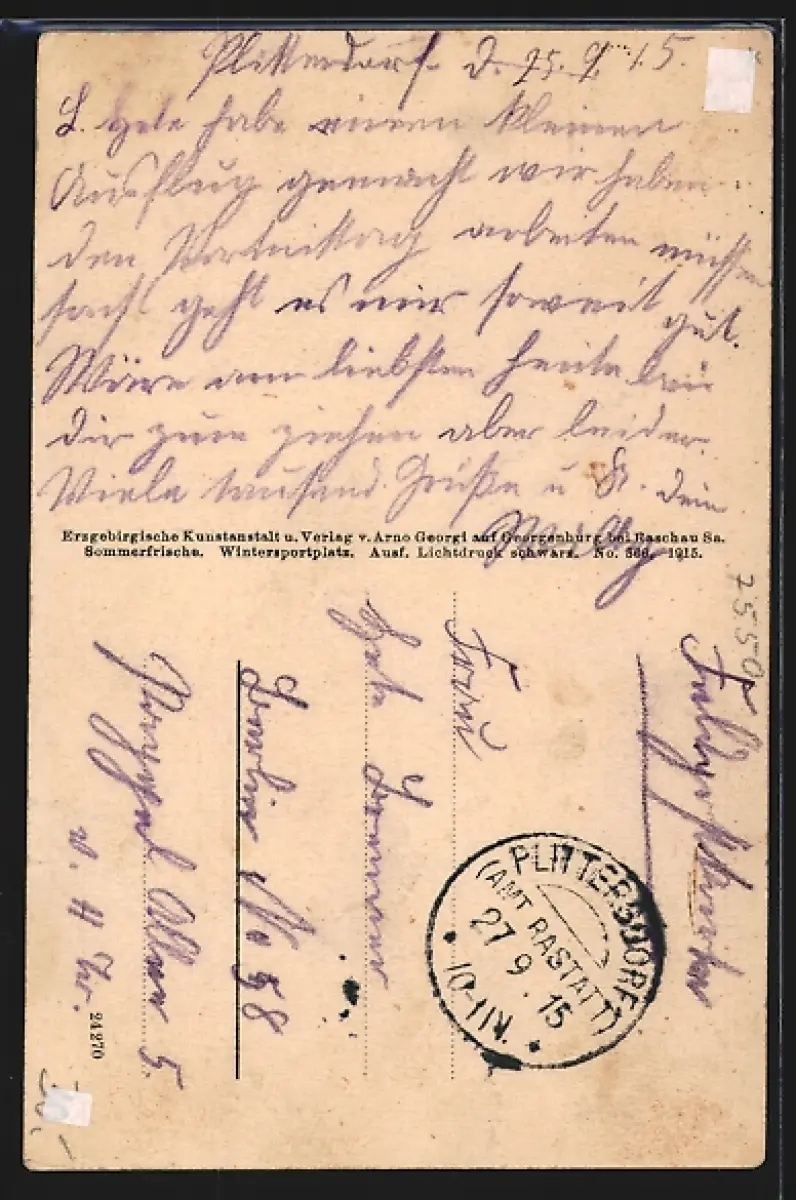 Plittersdorf d. 25. 9. 15.
L. Hete habe einen kleinen
Ausflug gemacht wir haben
den Vormittag arbeiten müssen
sonst geht es mir soweit gut.
Wäre am liebsten heute bei
dir zum ziehen aber leider.
Viele tausend Grüße u K. dein
Willy
Erzgebirgische Kunstanstalt u. Verlag v. Arno Georgi auf Georgenburg bei Raschau Sa.
Sommerfrische. Wintersportplatz. Ausf. Lichtdruck schwarz. No. 366. 1915.
2550
Feldpostkarte
Frau
Hete
Berlin No 58
Allee 5
v. H Tr.
24270
PLITTERSDORF
(AMT RASTATT)
27 9 15
* 10-11V. *